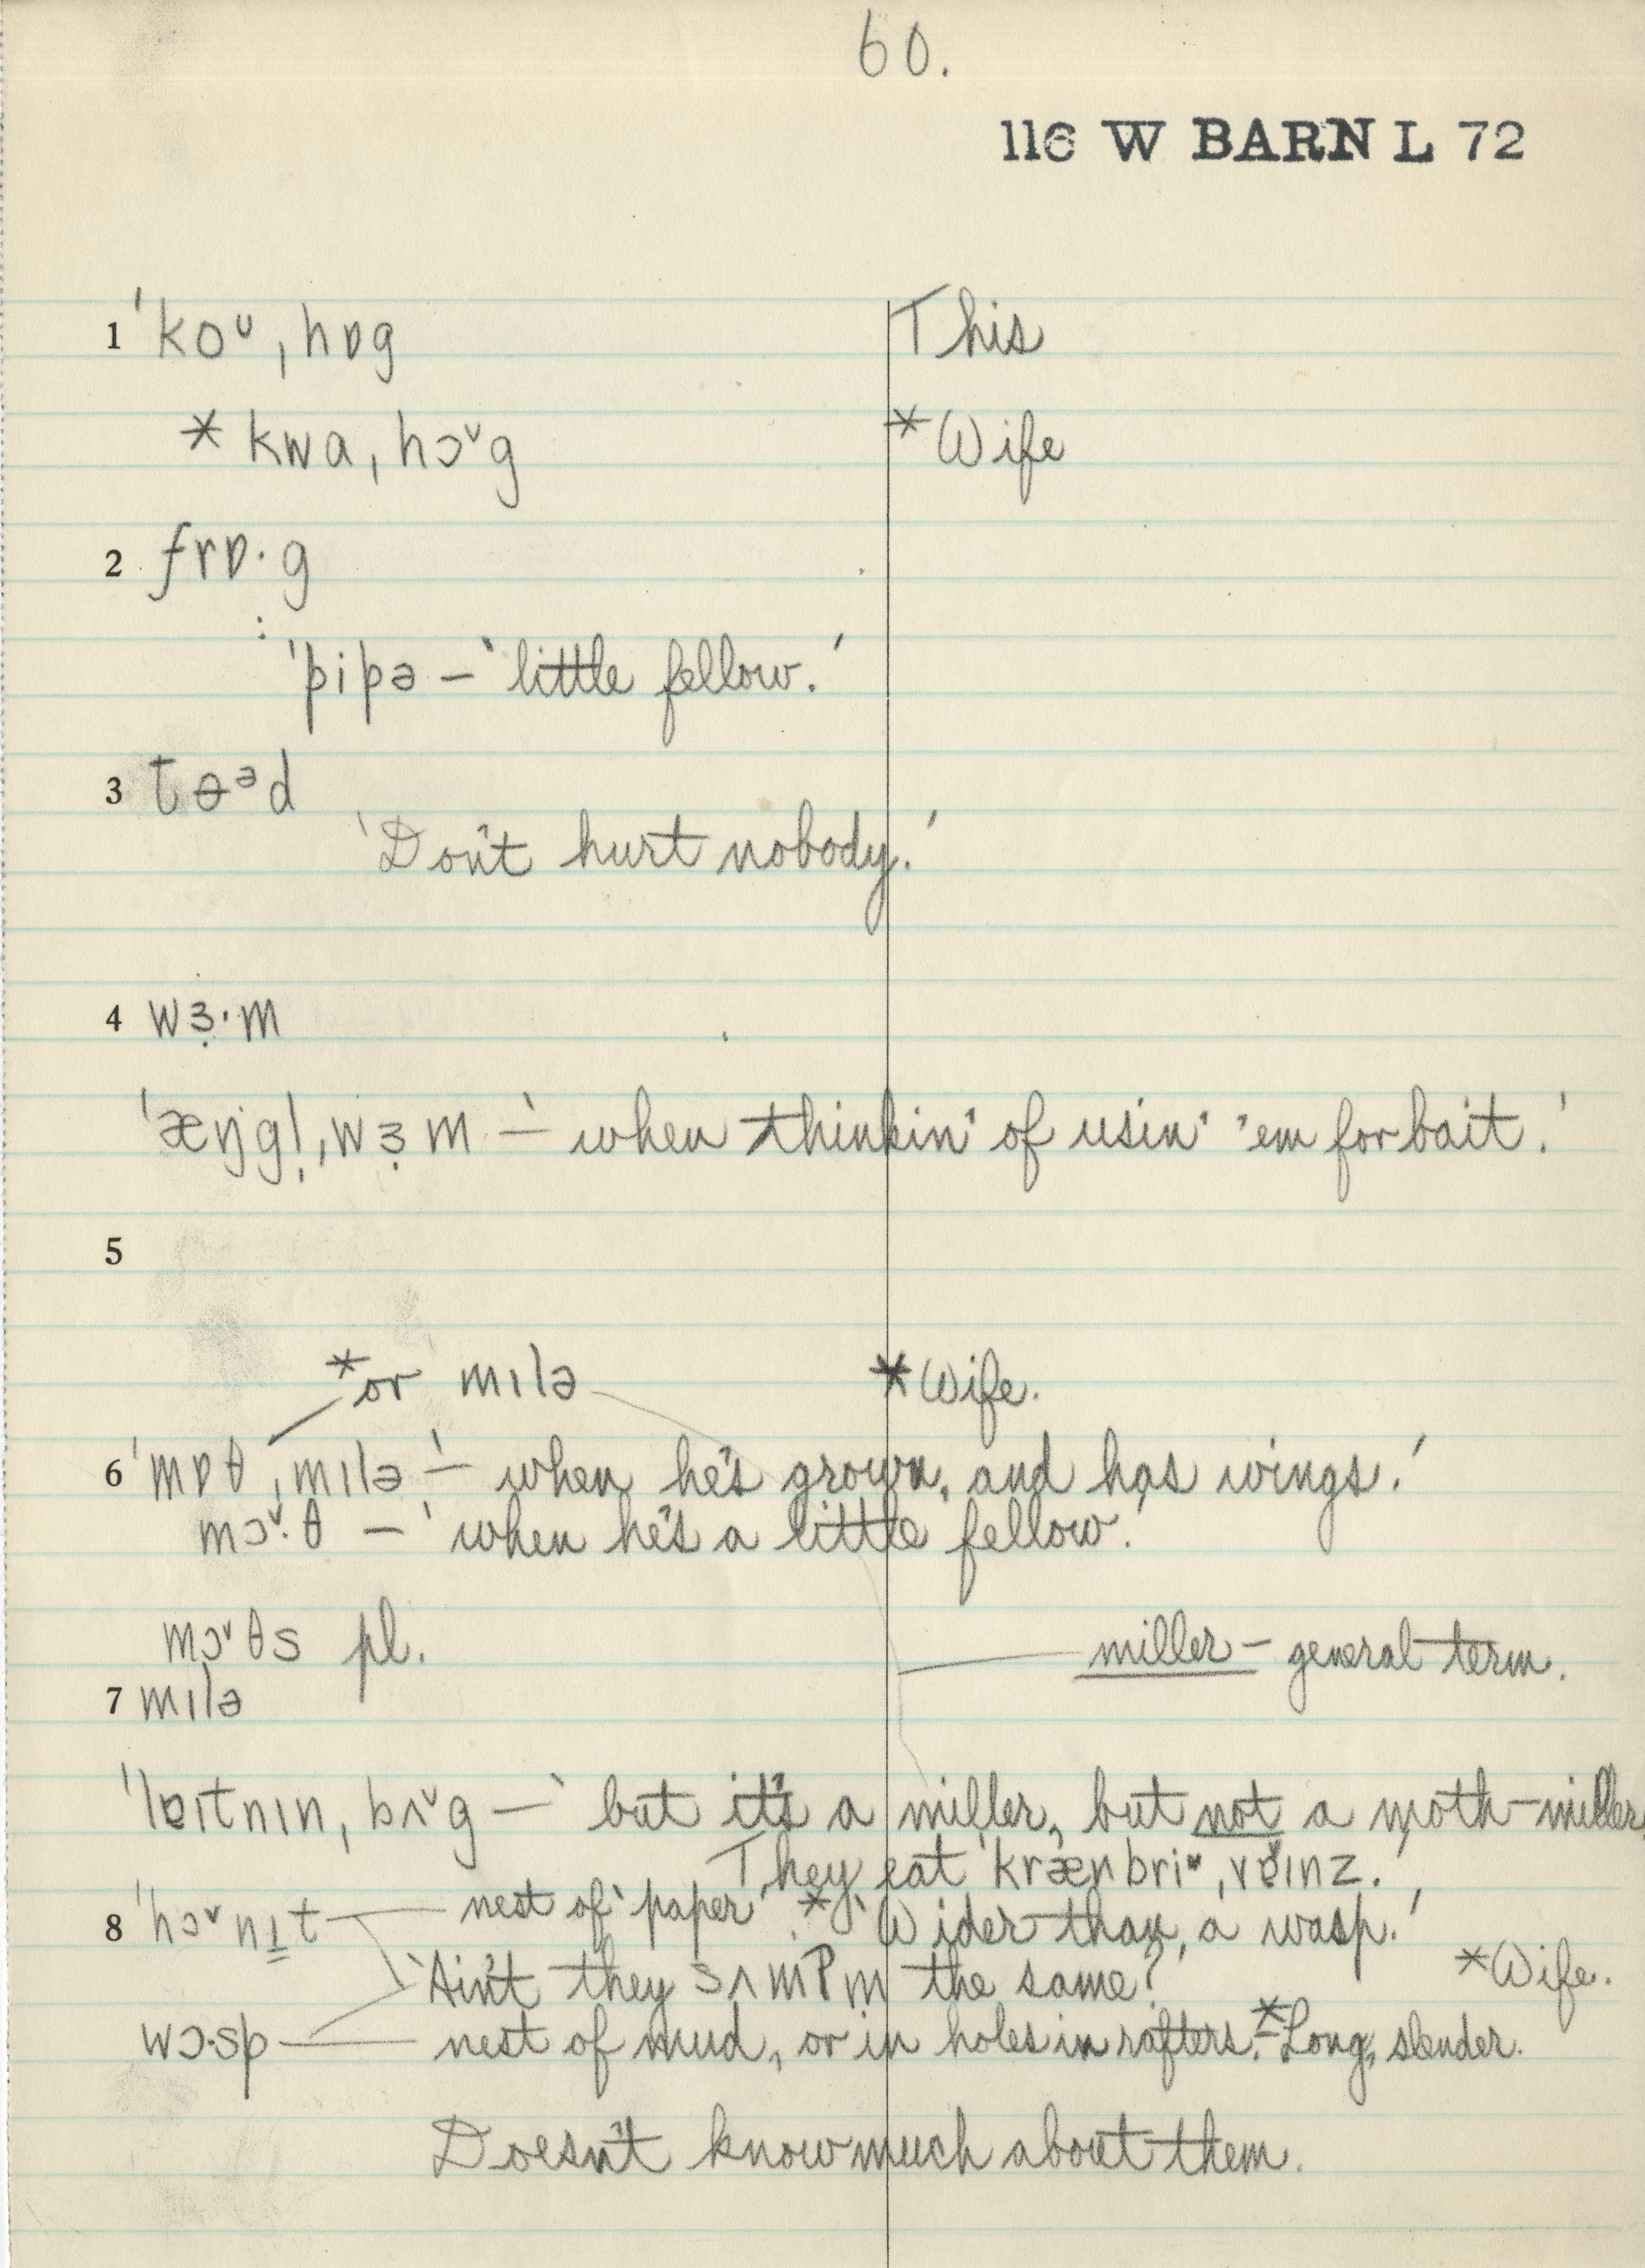 60.
116 W BARN L 72
1 ˈkoᴜ ˌhɒg This
* kwa ˌhɔ˅g *Wife
2 frɒ·g
: ˈpipə – ‘little fellow.’
3 tɵᵊd
‘Don't hurt nobody.’
4 wɜ̣·m
ˈæŋgl̩ ˌwɜ̣m – ‘when thinkin' of usin' 'em for bait.’
5
*or mɪlə *Wife.
6 ˈmɒθ ˌmɪlə – ‘when he's grown, and has wings.’
mɔ˅·θ – ‘when he's a little fellow.’
mɔ˅θs pl. miller – general term.
7 mɪlə
ˈlɐɪtnɪn ˌbʌ˅g – ‘but it's a miller, but not a moth-miller.
They eat ˈkrænbri ˌvɐɪnz.’
8 ˈhɔ˅nɪt nest of ‘paper’. * ‘Wider than a wasp.’
‘Ain't they sʌmʔm the same?’ *Wife.
wɔ·sp nest of mud, or in holes in rafters. *– Long, slender.
Doesn't know much about them.